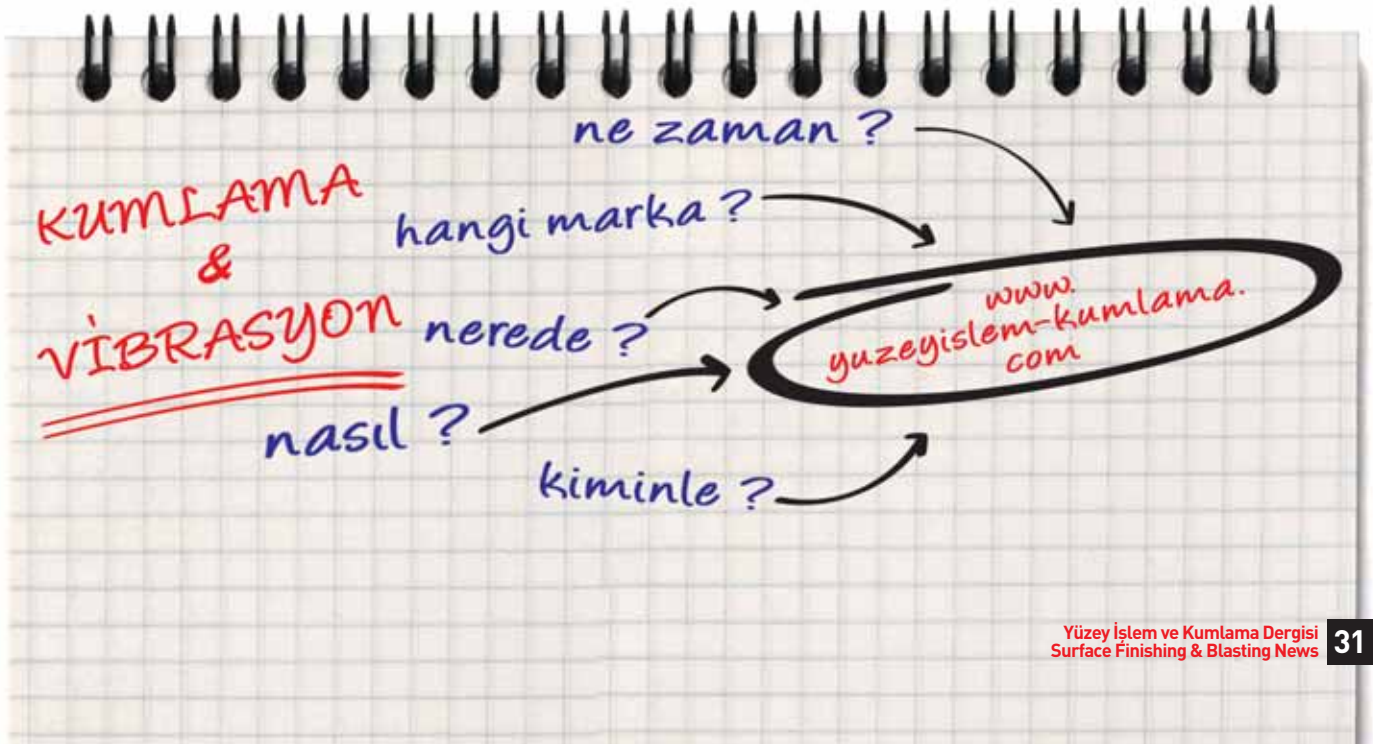 ne zaman ?
KUMLAMA
&
VİBRASYON
hangi marka ?
nerede ?
nasıl ?
kiminle ?
www.
yuzeyislem-kumlama.
com
Yüzey İşlem ve Kumlama Dergisi
Surface Finishing & Blasting News
31